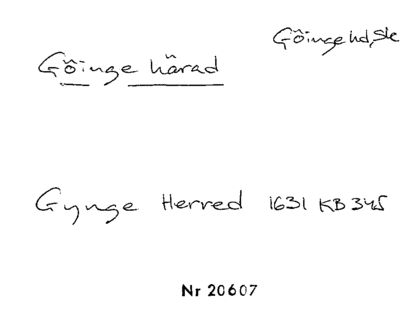 Göinge hd, Sk
Göinge härad
Gynge Herred 1631 KB 345
Nr 20607